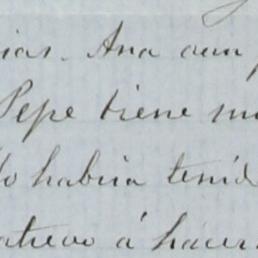 ias. Ana aun
Pepe tiene m
habia tenid
atrevo á hacer